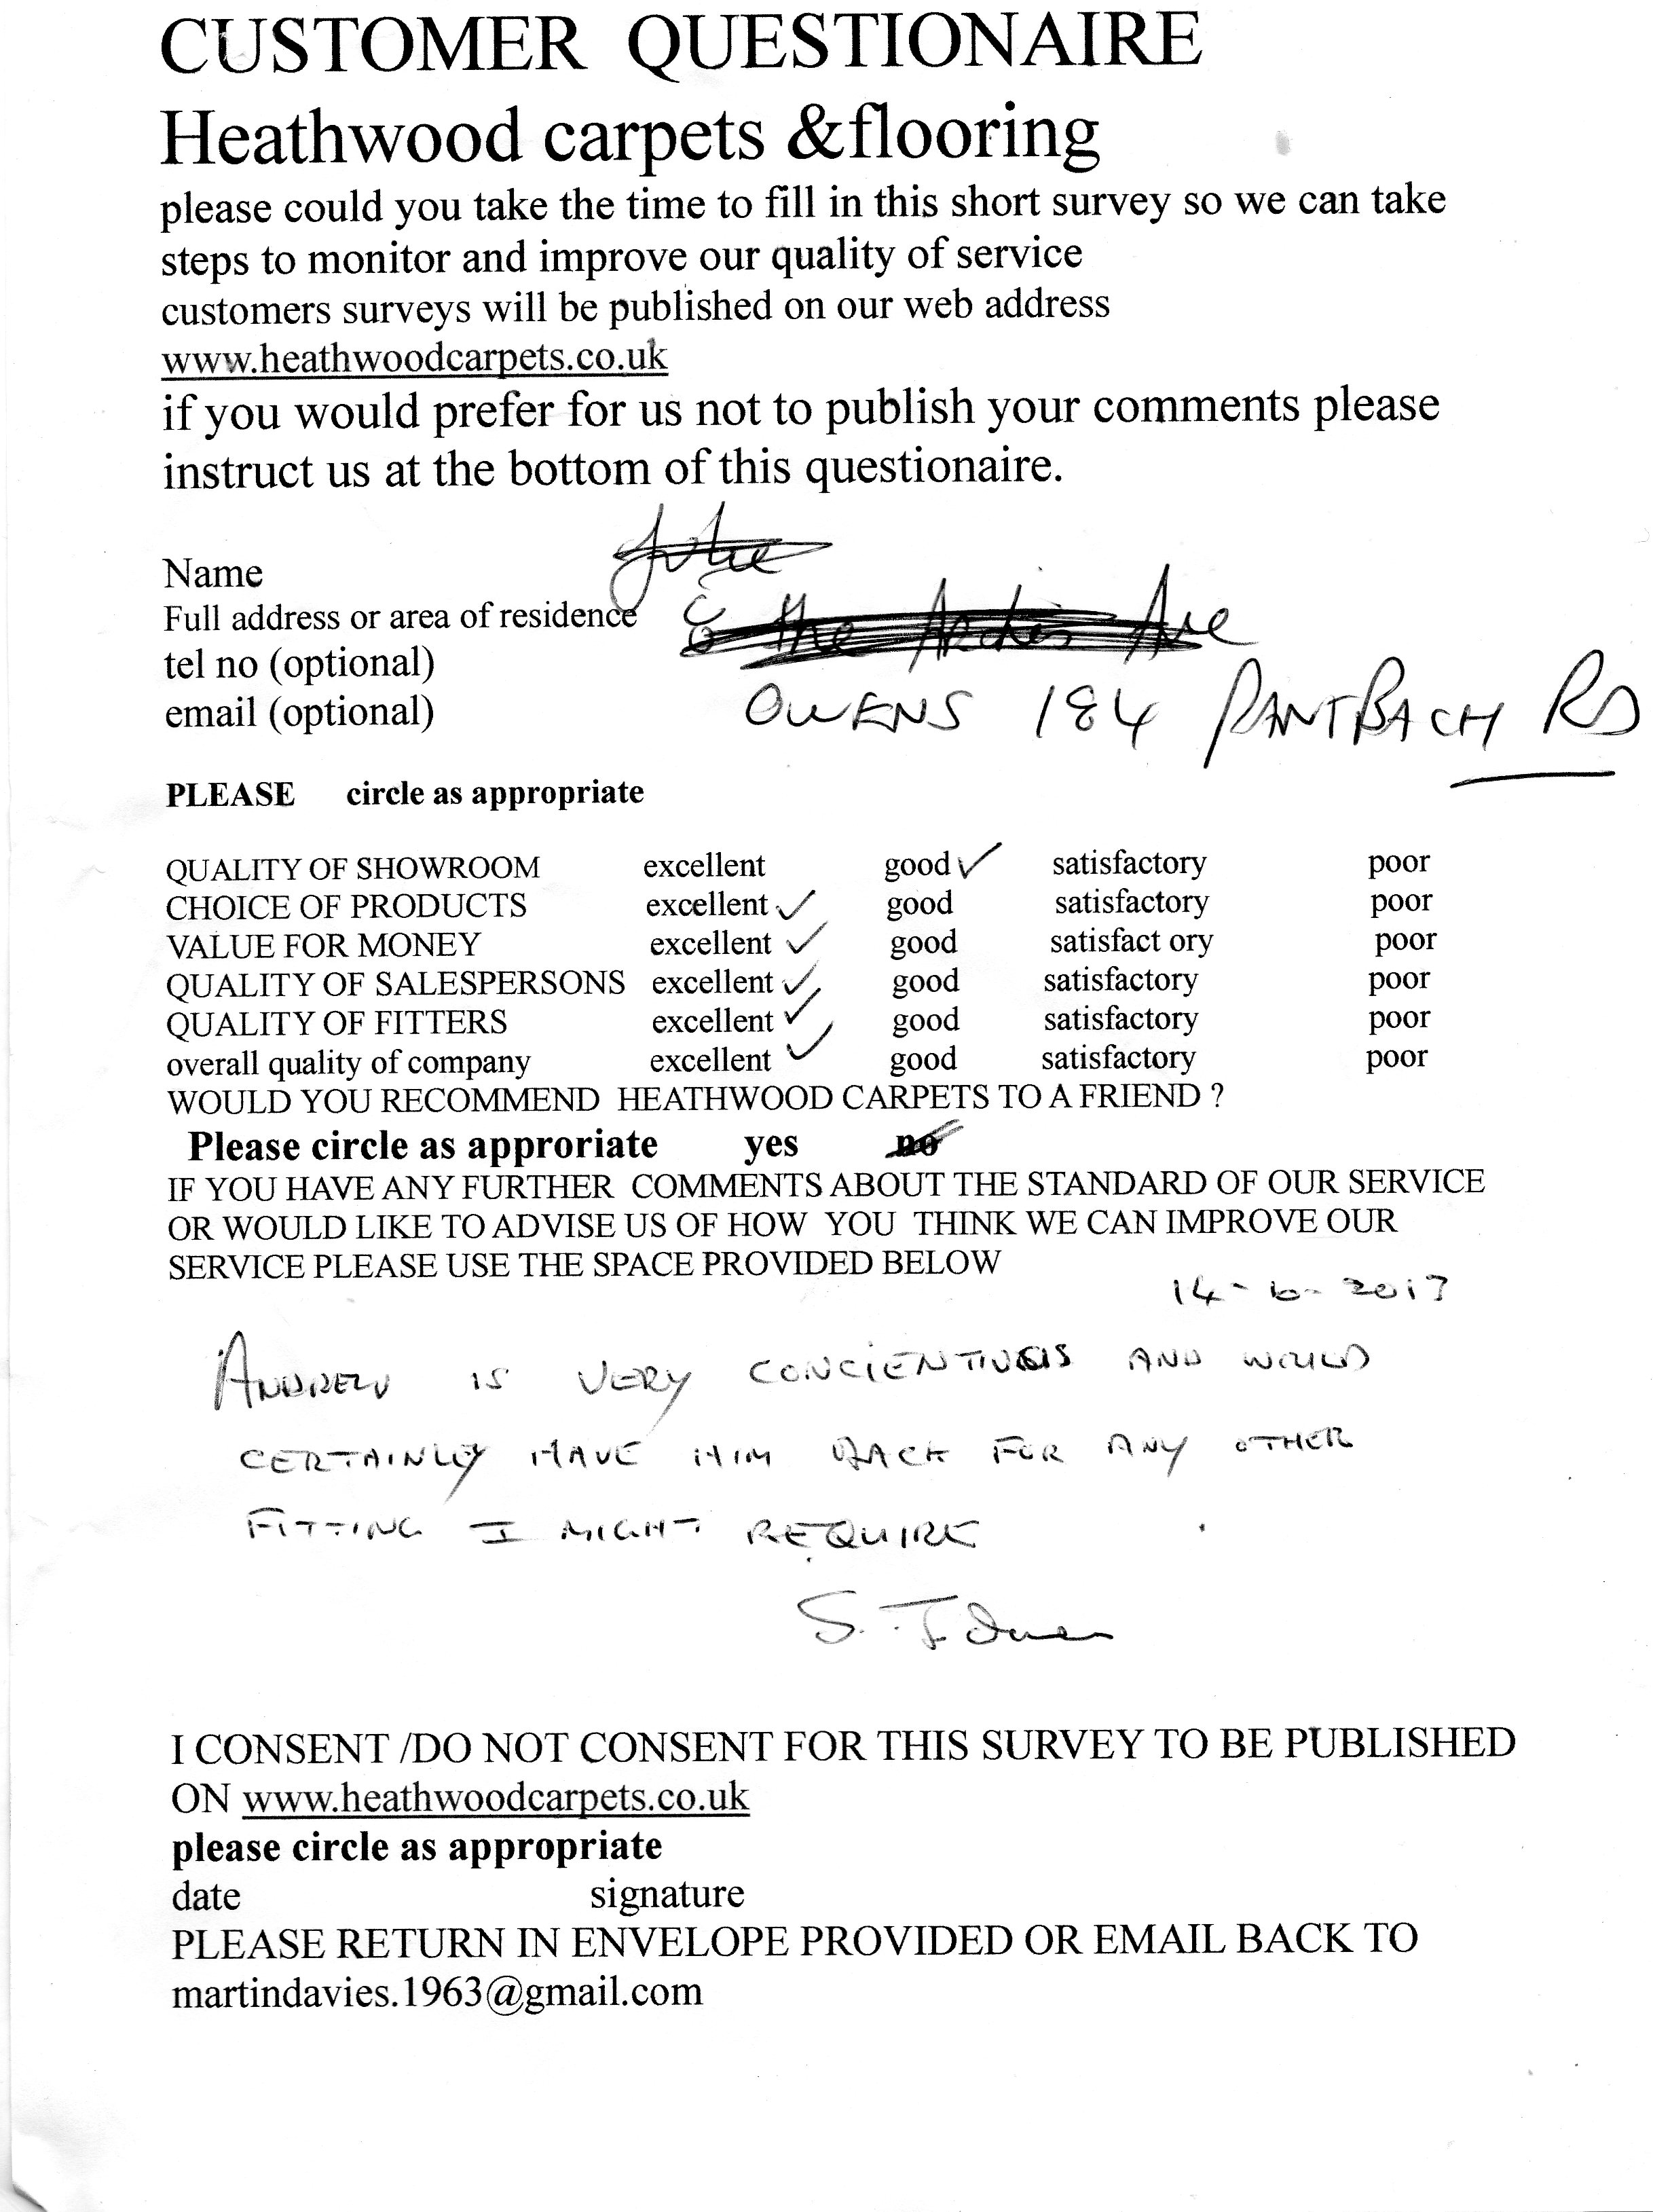 CUSTOMER QUESTIONAIRE
Heathwood carpets &flooring
please could you take the time to fill in this short survey so we can take
steps to monitor and improve our quality of service
customers surveys will be published on our web address
www.heathwoodcarpets.co.uk
if you would prefer for us not to publish your comments please
instruct us at the bottom of this questionaire.
Name
Full address or area of residence Ave
tel no (optional)
email (optional) OWENS 184 PANTBACH RD
PLEASE circle as appropriate
QUALITY OF SHOWROOM excellent good ✓ satisfactory poor
CHOICE OF PRODUCTS excellent ✓ good satisfactory poor
VALUE FOR MONEY excellent ✓ good satisfact ory poor
QUALITY OF SALESPERSONS excellent ✓ good satisfactory poor
QUALITY OF FITTERS excellent ✓ good satisfactory poor
overall quality of company excellent ✓ good satisfactory poor
WOULD YOU RECOMMEND HEATHWOOD CARPETS TO A FRIEND ?
Please circle as approriate yes no
IF YOU HAVE ANY FURTHER COMMENTS ABOUT THE STANDARD OF OUR SERVICE
OR WOULD LIKE TO ADVISE US OF HOW YOU THINK WE CAN IMPROVE OUR
SERVICE PLEASE USE THE SPACE PROVIDED BELOW
14-6-2017
ANDREW IS VERY CONCIENTIUOS AND WOULD
CERTAINLY HAVE HIM BACK FOR ANY OTHER
FITTING I MIGHT REQUIRE
I CONSENT /DO NOT CONSENT FOR THIS SURVEY TO BE PUBLISHED
ON www.heathwoodcarpets.co.uk
please circle as appropriate
date signature
PLEASE RETURN IN ENVELOPE PROVIDED OR EMAIL BACK TO
martindavies.1963@gmail.com